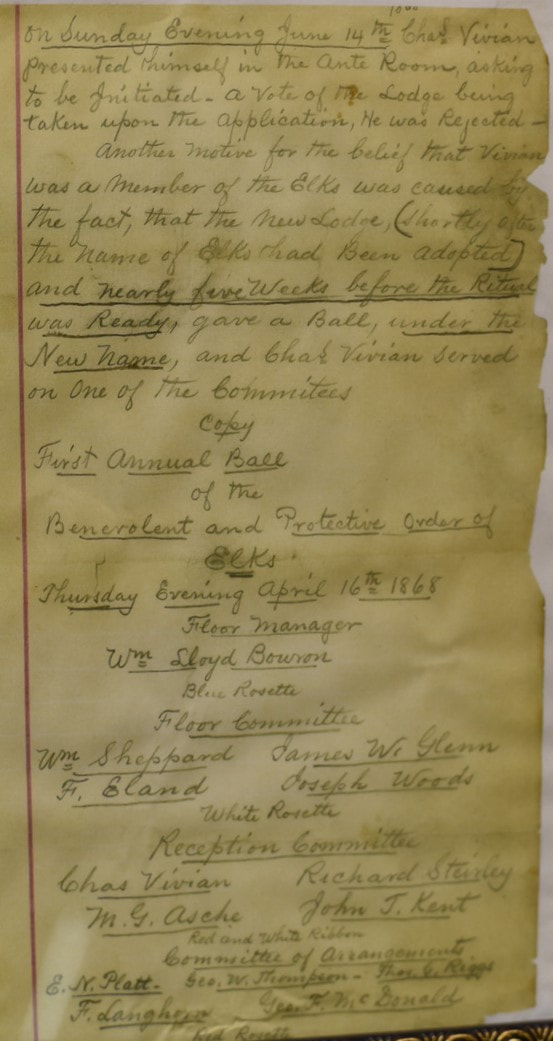 on Sunday Evening June 14th Chas Vivian
presented himself in the Ante Room, asking
to be Initiated - a Vote of the Lodge being
taken upon the Application, He was Rejected -
Another Motive for the belief that Vivian
was a Member of the Elks was caused by
the fact, that the New Lodge, (shortly after
the Name of Elks had Been adopted)
and nearly five Weeks before the Ritual
was Ready, gave a Ball, under the
New Name, and Chas Vivian Served
on One of the Commitees
copy
First Annual Ball
of the
Benevolent and Protective Order of
Elks
Thursday Evening April 16th 1868
Floor Manager
Wm Lloyd Bowron
Blue Rosette
Floor Committee
Wm Sheppard James W. Glenn
F. Eland Joseph Woods
White Rosette
Reception Committee
Chas Vivian Richard Steirley
M. G. Asche John T. Kent
Red and White Ribbon
Committee of Arrangements
E. N. Platt - Geo. W. Thompson - Thos. G. Riggs
F. Langhorn Geo. F. McDonald
Red Rosette